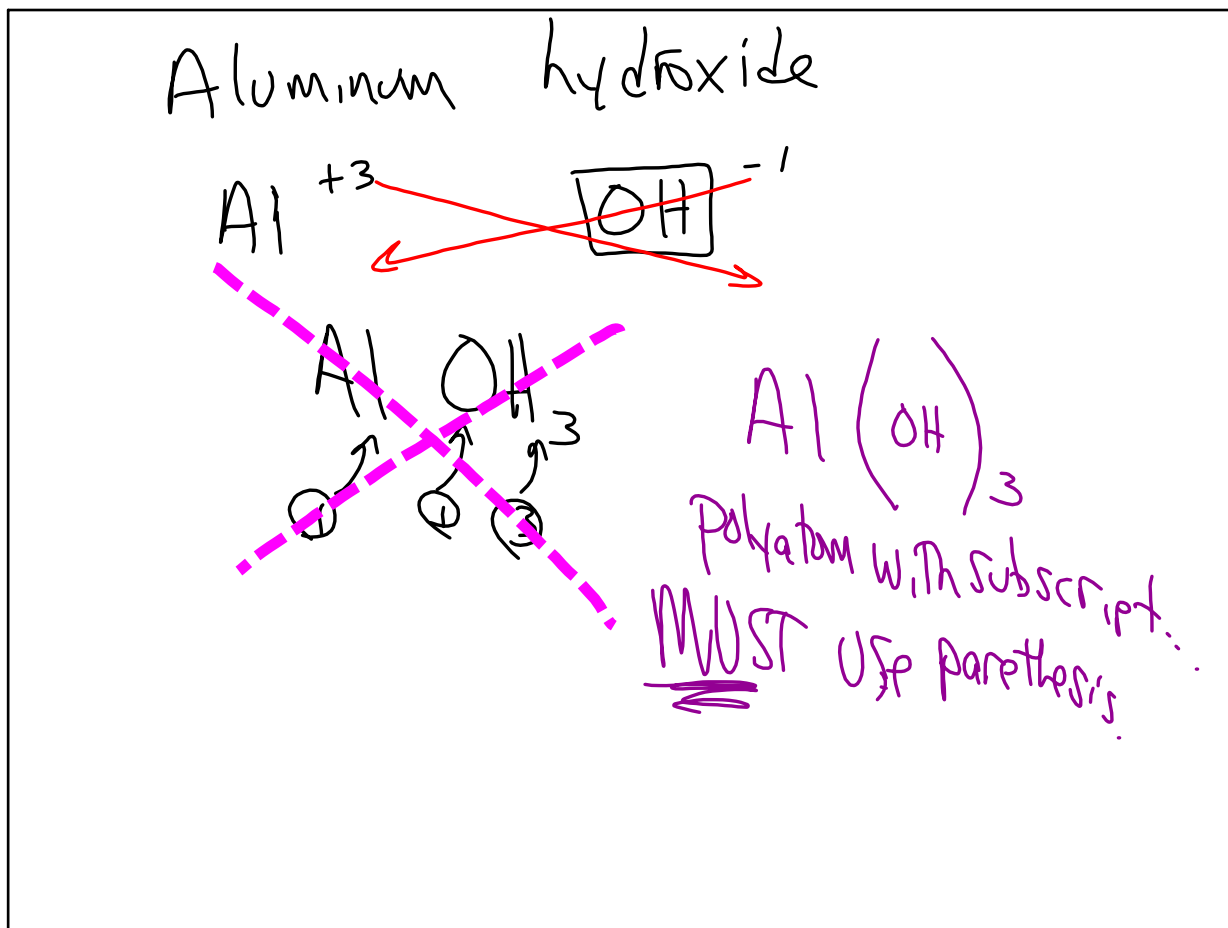 Aluminum hydroxide
Al +3 OH -1
Al OH 3
1 1 3
Al (OH) 3
Polyatom with subscript...
MUST Use parethesis.